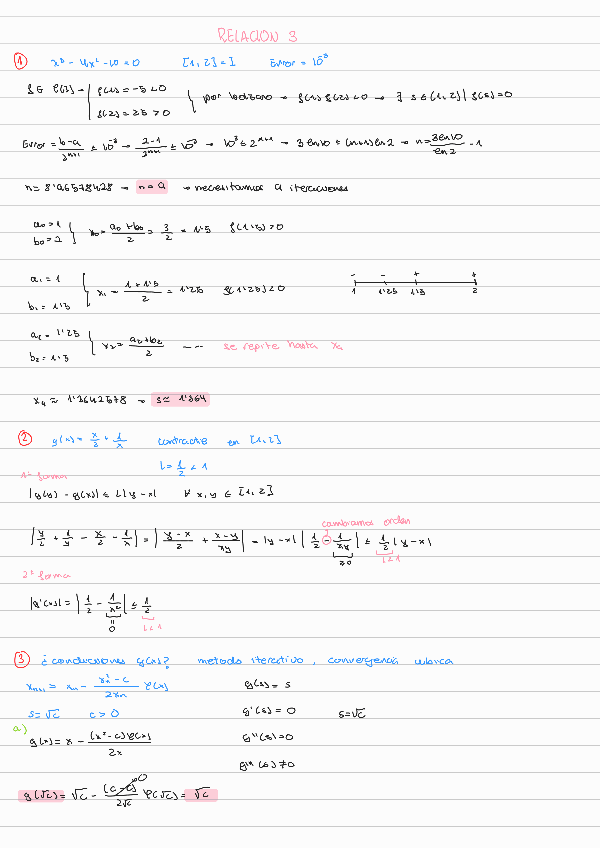 RELACION 3
① x³ - 4x² - 10 = 0 [1, 2] = I Error = 10⁻³
f(1) = -5 < 0
f(2) = 25 > 0
por bolzano → f(1) f(2) < 0 → ∃ s ∈ (1, 2) | f(s) = 0
Error = b-a/2ⁿ⁺¹ ≤ 10⁻³ → 2-1/2ⁿ⁺¹ ≤ 10⁻³ → 10³ ≤ 2ⁿ⁺¹ → 3 ln 10 ≤ (n+1) ln 2 → n = 3 ln 10/ln 2 - 1
n = 8'96578428 → n = 9 → necesitamos 9 iteraciones
a₀ = 1
b₀ = 2
x₀ = a₀ + b₀/2 = 3/2 = 1'5 f(1'5) > 0
a₁ = 1
b₁ = 1'5
x₁ = 1 + 1'5/2 = 1'25 f(1'25) < 0
- - + +
1 1'25 1'5 2
a₂ = 1'25
b₂ = 1'5
x₂ = a₂ + b₂/2 --- se repite hasta x₉
x₉ ≈ 1'3642578 → s ≈ 1'364
② g(x) = x/2 + 1/x contractil en [1, 2]
L = 1/2 < 1
1ª forma
|g(y) - g(x)| ≤ L|y - x| ∀ x, y ∈ [1, 2]
cambiamos orden
|y/2 + 1/y - x/2 - 1/x| = |y-x/2 + x-y/xy| = |y - x| |1/2 - 1/xy| ≤ 1/2 |y - x|
≥0 L<1
2ª forma
|g'(x)| = |1/2 - 1/x²| ≤ 1/2
0 L<1
③ ¿condiciones φ(x)? metodo iterativo, convergencia cubica
xₙ₊₁ = xₙ - xₙ² - c/2xₙ φ(x) g(s) = s
s = √c c > 0 g'(s) = 0 s = √c
a)
g(x) = x - (x² - c)φ(x)/2x g''(s) = 0
g'''(s) ≠ 0
g(√c) = √c - (c - c)/2√c φ(√c) = √c
0